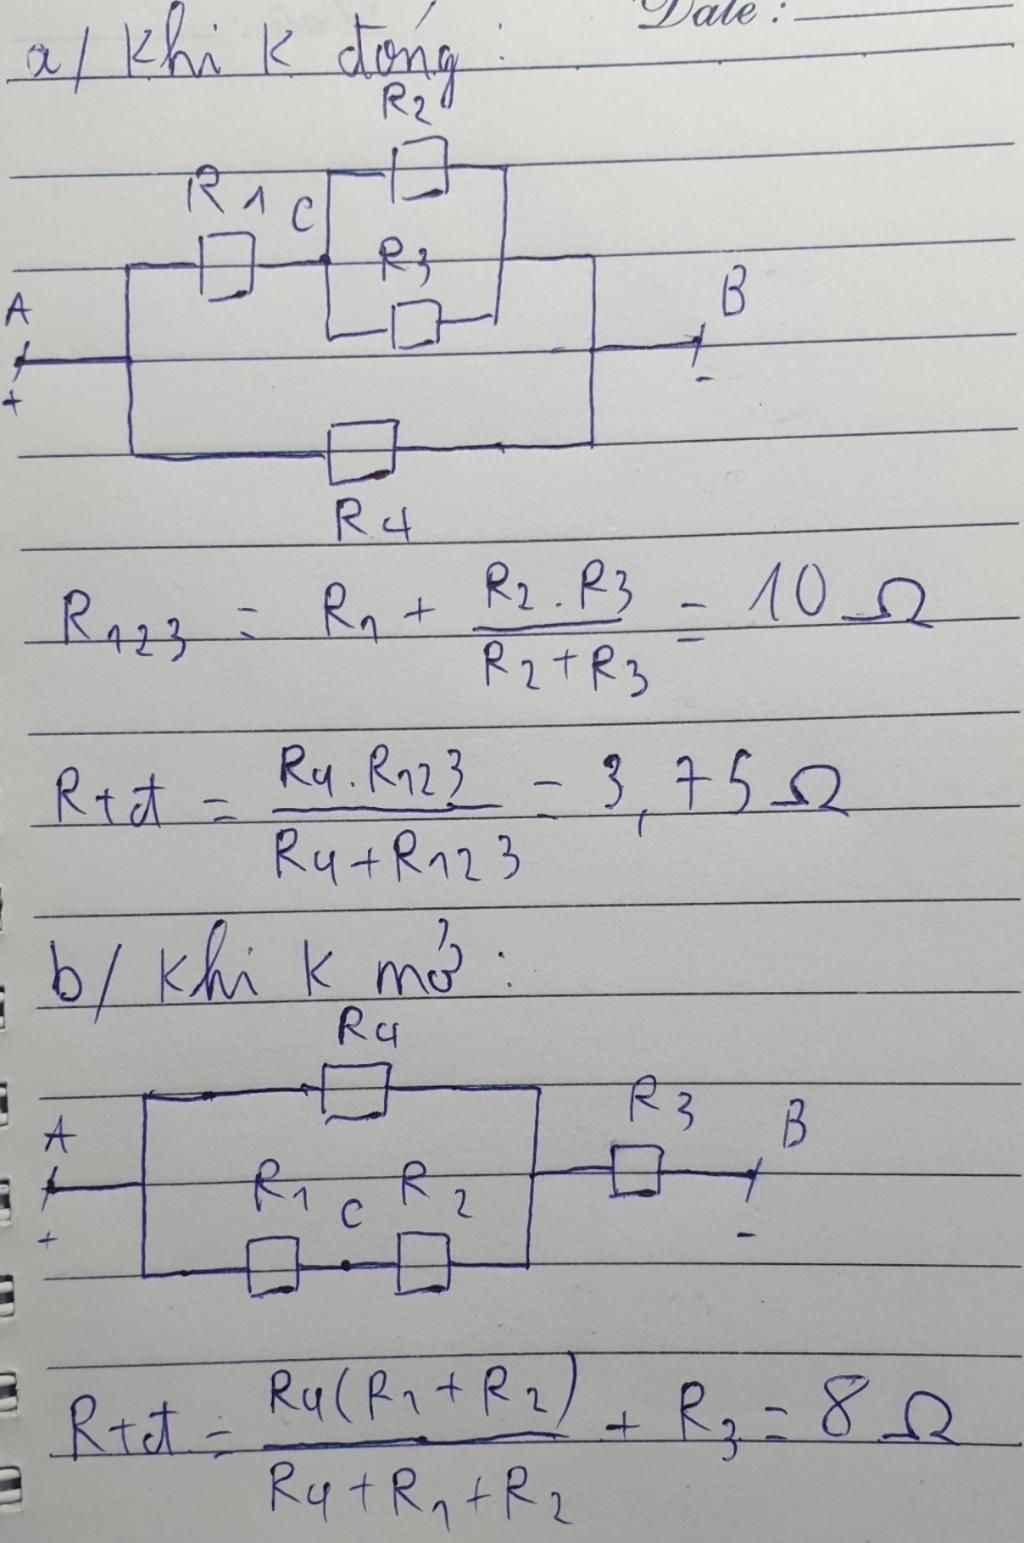 Date :
a/ Khi K đóng :
R2
R1 C
R3
A
B
+
-
R4
R123 = R1 + R2 . R3 / R2 + R3 = 10 Ω
Rtđ = R4 . R123 / R4 + R123 = 3,75 Ω
b/ Khi K mở :
R4
R3
A
B
R1 C R2
+
-
Rtđ = R4(R1 + R2) / R4 + R1 + R2 + R3 = 8 Ω